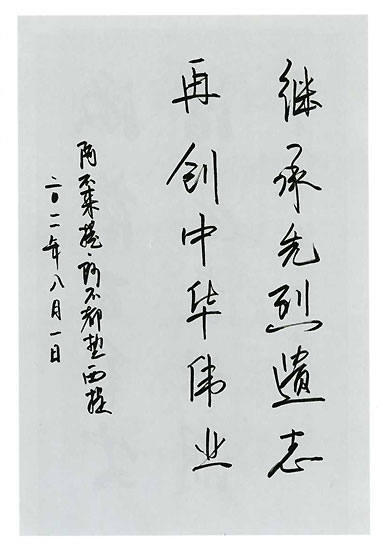 继承先烈遺志
再创中华伟业
阿不来提·阿不都热西提
二〇一一年八月一日